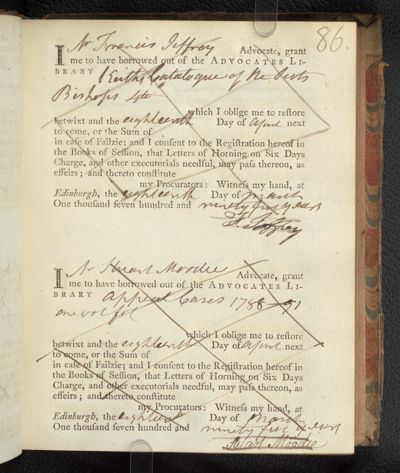 86.
I Mr Francis Jeffrey Advocate, grant
me to have borrowed out of the ADVOCATES LI-
BRARY Keiths Catalogue of the Scots
Bishops 4to
which I oblige me to reſtore
betwixt and the eighteenth Day of April next
to come, or the Sum of
in caſe of Failzie; and I conſent to the Regiſtration hereof in
the Books of Seſſion, that Letters of Horning on Six Days
Charge, and other executorials needful, may paſs thereon, as
effeirs; and thereto conſtitute
my Procurators: Witneſs my hand, at
Edinburgh, the eighteenth Day of March
One thouſand ſeven hundred and ninety five years
F. Jeffrey
I Mr Stuart Moodie Advocate, grant
me to have borrowed out of the ADVOCATES LI-
BRARY Appeal Cases 1788–91
one vol fol
which I oblige me to reſtore
betwixt and the eighteenth Day of April next
to come, or the Sum of
in caſe of Failzie; and I conſent to the Regiſtration hereof in
the Books of Seſſion, that Letters of Horning on Six Days
Charge, and other executorials needful, may paſs thereon, as
effeirs; and thereto conſtitute
my Procurators: Witneſs my hand, at
Edinburgh, the eighteenth Day of March
One thouſand ſeven hundred and ninety five years
Stuart Moodie